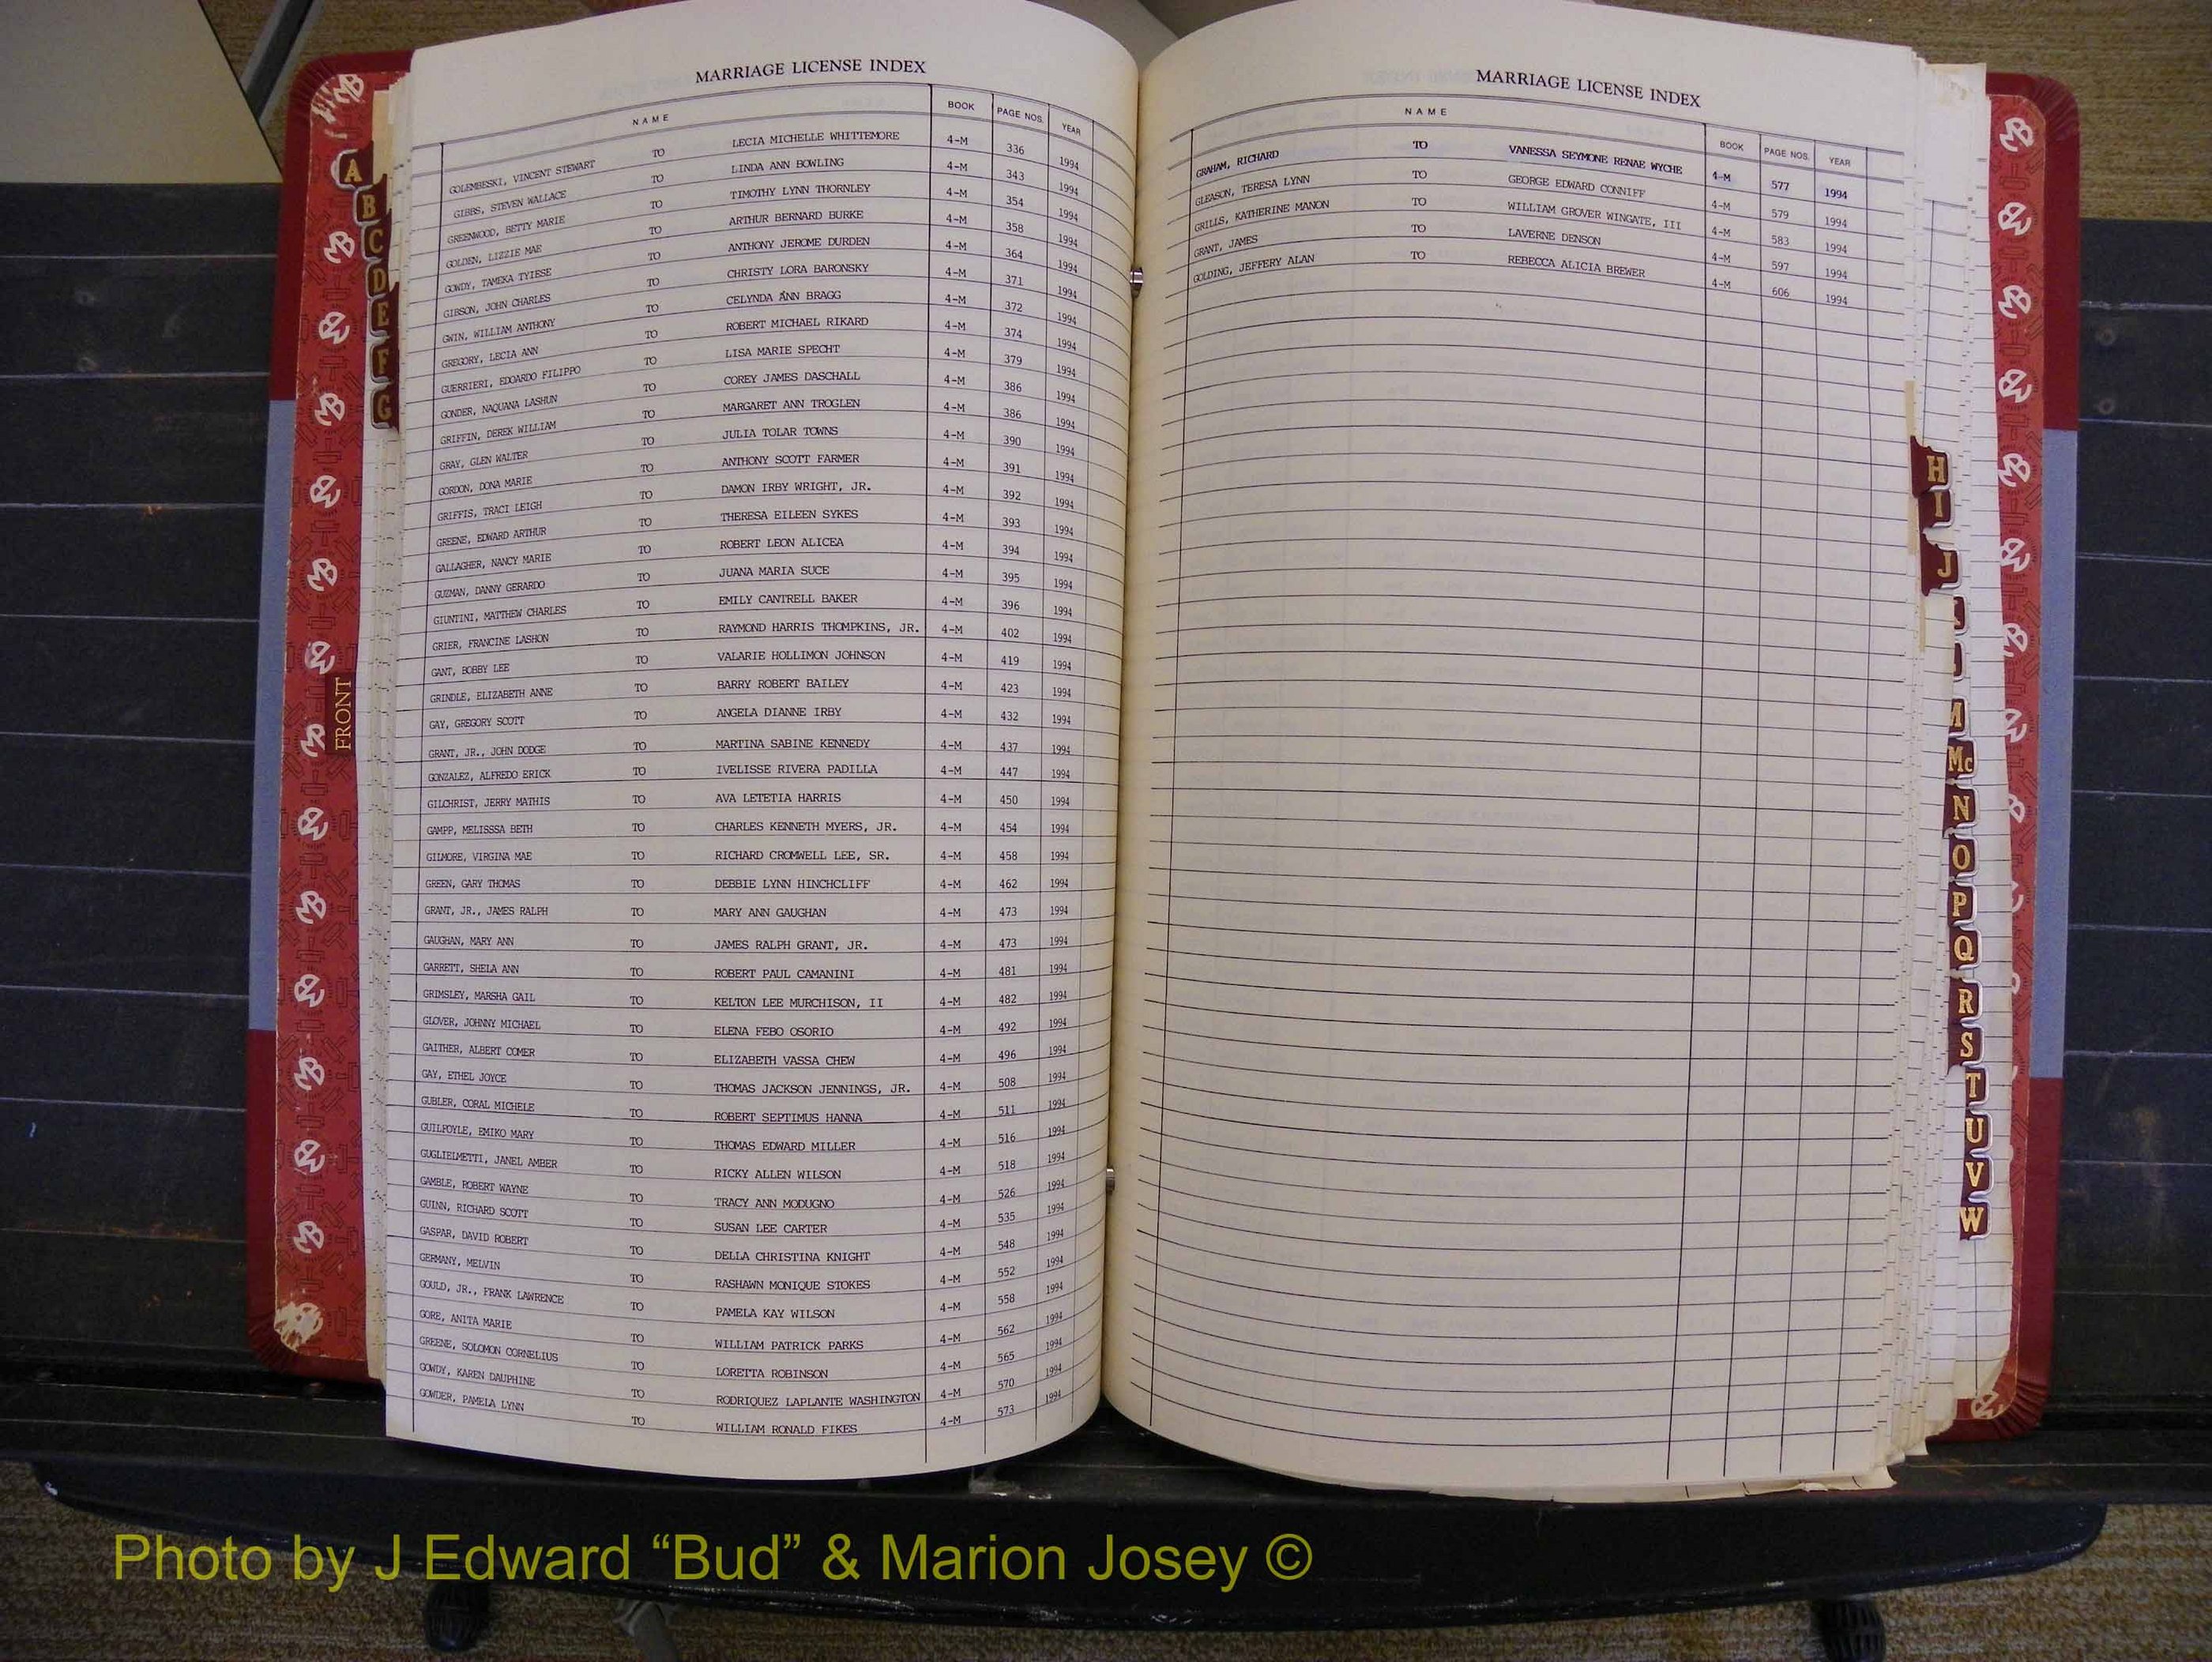 MARRIAGE LICENSE INDEX
NAME BOOK PAGE NOS. YEAR
GOLEMBESKI, VINCENT STEWART TO LECIA MICHELLE WHITTEMORE 4-M 336 1994
GIBBS, STEVEN WALLACE TO LINDA ANN BOWLING 4-M 343 1994
GREENWOOD, BETTY MARIE TO TIMOTHY LYNN THORNLEY 4-M 354 1994
GOLDEN, LIZZIE MAE TO ARTHUR BERNARD BURKE 4-M 358 1994
GOWDY, TAMEKA TYIESE TO ANTHONY JEROME DURDEN 4-M 364 1994
GIBSON, JOHN CHARLES TO CHRISTY LORA BARONSKY 4-M 371 1994
GWIN, WILLIAM ANTHONY TO CELYNDA ANN BRAGG 4-M 372 1994
GREGORY, LECIA ANN TO ROBERT MICHAEL RIKARD 4-M 374 1994
GUERRIERI, EDOARDO FILIPPO TO LISA MARIE SPECHT 4-M 379 1994
GONDER, NAQUANA LASHUN TO COREY JAMES DASCHALL 4-M 386 1994
GRIFFIN, DEREK WILLIAM TO MARGARET ANN TROGLEN 4-M 386 1994
GRAY, GLEN WALTER TO JULIA TOLAR TOWNS 4-M 390 1994
GORDON, DONA MARIE TO ANTHONY SCOTT FARMER 4-M 391 1994
GRIFFIS, TRACI LEIGH TO DAMON IRBY WRIGHT, JR. 4-M 392 1994
GREENE, EDWARD ARTHUR TO THERESA EILEEN SYKES 4-M 393 1994
GALLAGHER, NANCY MARIE TO ROBERT LEON ALICEA 4-M 394 1994
GUZMAN, DANNY GERARDO TO JUANA MARIA SUCE 4-M 395 1994
GIUNTINI, MATTHEW CHARLES TO EMILY CANTRELL BAKER 4-M 396 1994
GRIER, FRANCINE LASHON TO RAYMOND HARRIS THOMPKINS, JR. 4-M 402 1994
GANT, BOBBY LEE TO VALARIE HOLLIMON JOHNSON 4-M 419 1994
GRINDLE, ELIZABETH ANNE TO BARRY ROBERT BAILEY 4-M 423 1994
GAY, GREGORY SCOTT TO ANGELA DIANNE IRBY 4-M 432 1994
GRANT, JR., JOHN DODGE TO MARTINA SABINE KENNEDY 4-M 437 1994
GONZALEZ, ALFREDO ERICK TO IVELISSE RIVERA PADILLA 4-M 447 1994
GILCHRIST, JERRY MATHIS TO AVA LETETIA HARRIS 4-M 450 1994
GAMPP, MELISSSA BETH TO CHARLES KENNETH MYERS, JR. 4-M 454 1994
GILMORE, VIRGINA MAE TO RICHARD CROMWELL LEE, SR. 4-M 458 1994
GREEN, GARY THOMAS TO DEBBIE LYNN HINCHCLIFF 4-M 462 1994
GRANT, JR., JAMES RALPH TO MARY ANN GAUGHAN 4-M 473 1994
GAUGHAN, MARY ANN TO JAMES RALPH GRANT, JR. 4-M 473 1994
GARRETT, SHELA ANN TO ROBERT PAUL CAMANINI 4-M 481 1994
GRIMSLEY, MARSHA GAIL TO KELTON LEE MURCHISON, II 4-M 482 1994
GLOVER, JOHNNY MICHAEL TO ELENA FEBO OSORIO 4-M 492 1994
GAITHER, ALBERT COMER TO ELIZABETH VASSA CHEW 4-M 496 1994
GAY, ETHEL JOYCE TO THOMAS JACKSON JENNINGS, JR. 4-M 508 1994
GUBLER, CORAL MICHELE TO ROBERT SEPTIMUS HANNA 4-M 511 1994
GUILFOYLE, EMIKO MARY TO THOMAS EDWARD MILLER 4-M 516 1994
GUGLIELMETTI, JANEL AMBER TO RICKY ALLEN WILSON 4-M 518 1994
GAMBLE, ROBERT WAYNE TO TRACY ANN MODUGNO 4-M 526 1994
GUINN, RICHARD SCOTT TO SUSAN LEE CARTER 4-M 535 1994
GASPAR, DAVID ROBERT TO DELLA CHRISTINA KNIGHT 4-M 548 1994
GERMANY, MELVIN TO RASHAWN MONIQUE STOKES 4-M 552 1994
GOULD, JR., FRANK LAWRENCE TO PAMELA KAY WILSON 4-M 558 1994
GORE, ANITA MARIE TO WILLIAM PATRICK PARKS 4-M 562 1994
GREENE, SOLOMON CORNELIUS TO LORETTA ROBINSON 4-M 565 1994
GOWDY, KAREN DAUPHINE TO RODRIQUEZ LAPLANTE WASHINGTON 4-M 570 1994
GOWDER, PAMELA LYNN TO WILLIAM RONALD FIKES 4-M 573 1994
MARRIAGE LICENSE INDEX
NAME BOOK PAGE NOS. YEAR
GRAHAM, RICHARD TO VANESSA SEYMONE RENAE WYCHE 4-M 577 1994
GLEASON, TERESA LYNN TO GEORGE EDWARD CONNIFF 4-M 579 1994
GRILLS, KATHERINE MANON TO WILLIAM GROVER WINGATE, III 4-M 583 1994
GRANT, JAMES TO LAVERNE DENSON 4-M 597 1994
GOLDING, JEFFERY ALAN TO REBECCA ALICIA BREWER 4-M 606 1994
A
B
C
D
E
F
G
FRONT
H
I
J
M
Mc
N
O
P
Q
R
S
T
U
V
W
Photo by J Edward “Bud” & Marion Josey ©